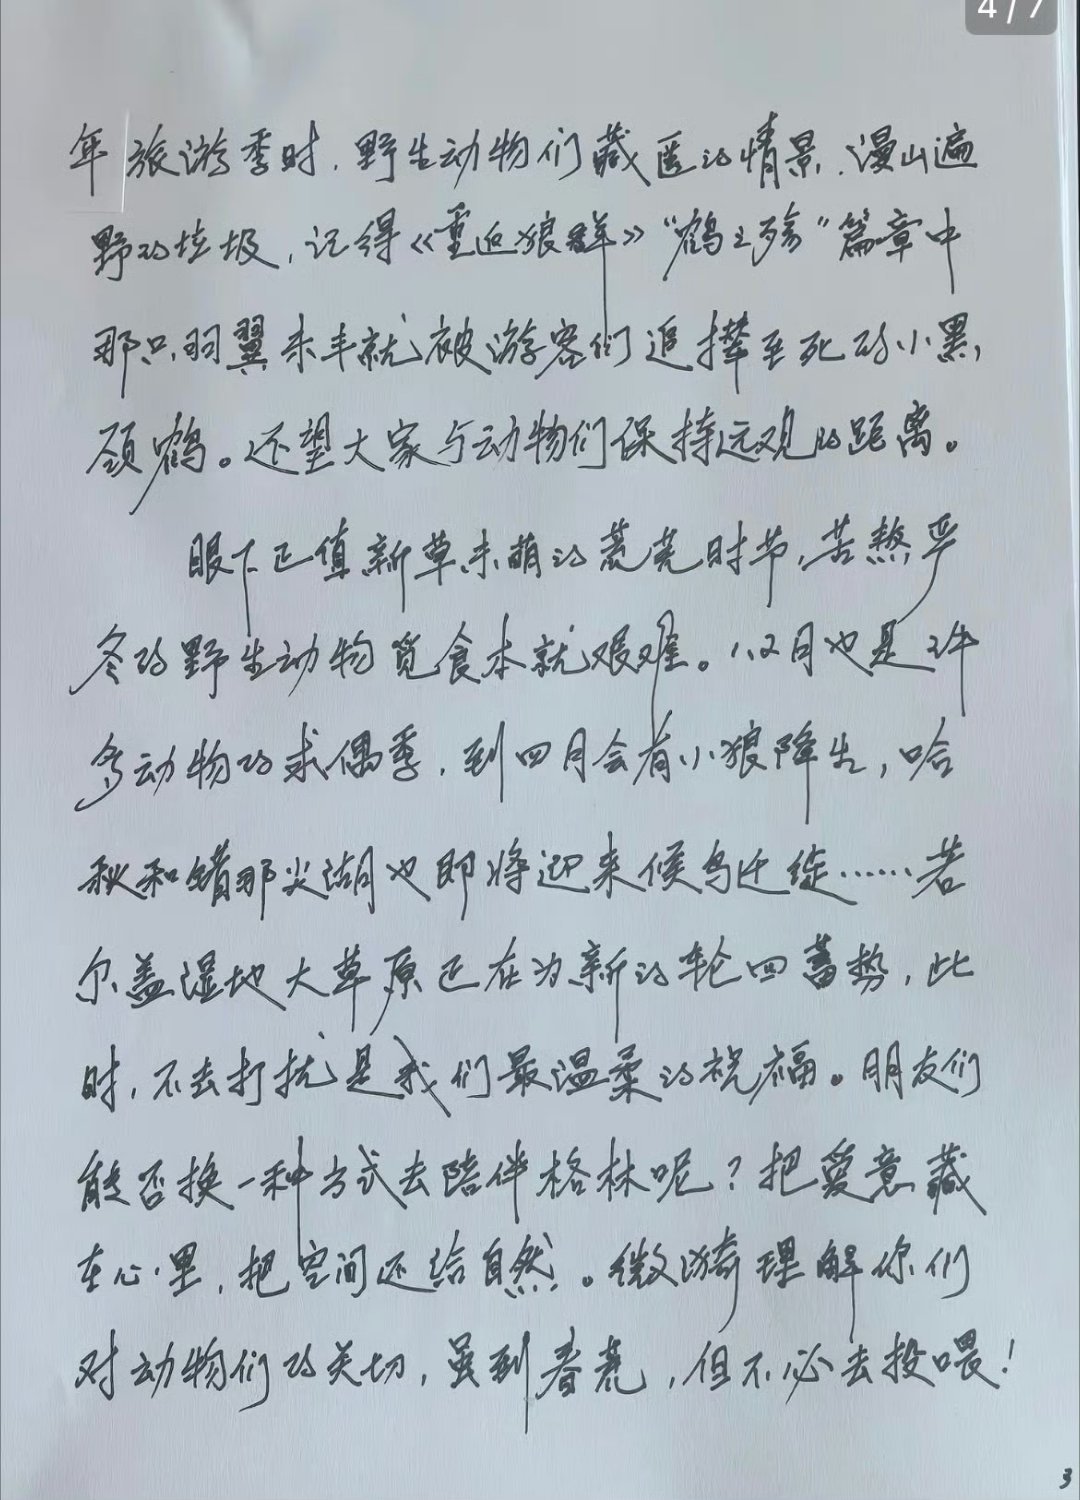 4/7
年旅游季时,野生动物们藏匿的情景,漫山遍
野的垃圾,记得《重返狼群》“鹤之殇”篇章中
那只羽翼未丰就被游客们追撵至死的小黑
颈鹤。还望大家与动物们保持远观的距离。
眼下正值新草未萌的荒芜时节,苦熬严
冬的野生动物觅食本就艰难。八二月也是许
多动物的求偶季,到四月会有小狼降生,哈
秋和错那尖湖也即将迎来候鸟迁徙……若
尔盖湿地大草原正在为新的轮回蓄势,此
时,不去打扰是我们最温柔的祝福。朋友们
能否换一种方式去陪伴格林呢?把爱意藏
在心里,把空间还给自然。微漪理解你们
对动物们的关切,虽到春荒,但不必去投喂!
3